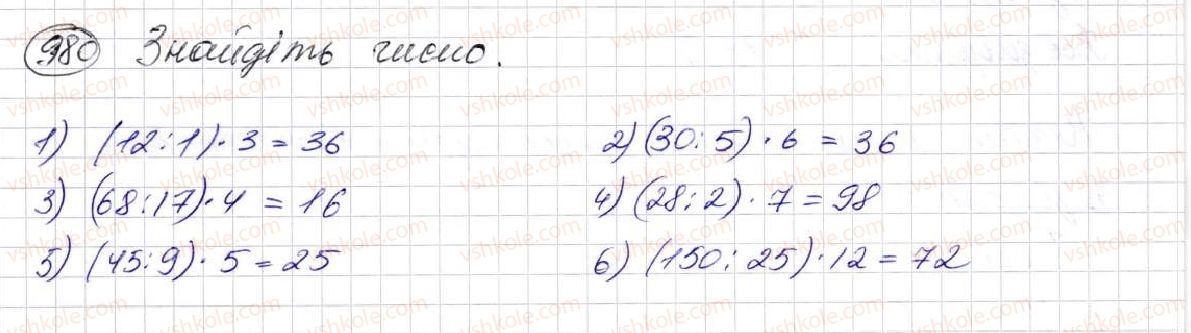 980 Знайдіть число.
1) (12:1)·3 = 36 2) (30:5)·6 = 36
3) (68:17)·4 = 16 4) (28:2)·7 = 98
5) (45:9)·5 = 25 6) (150:25)·12 = 72